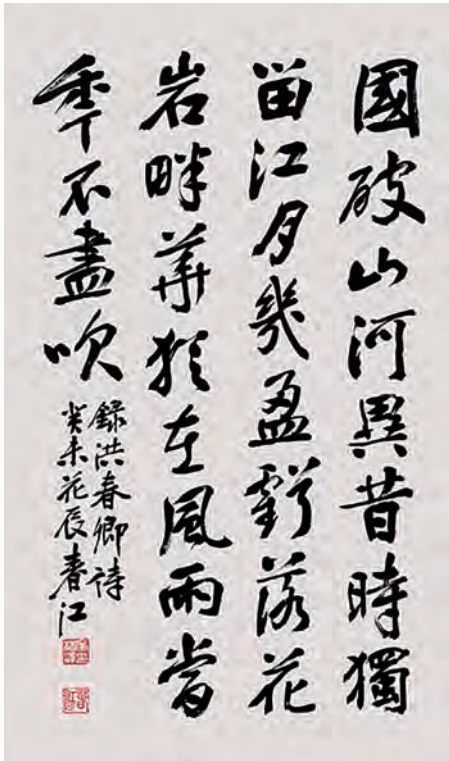 國破山河異昔時獨
留江月幾盈虧落花
岩畔華猶在風雨當
秊不盡吹
錄洪春卿詩
癸未花辰春江